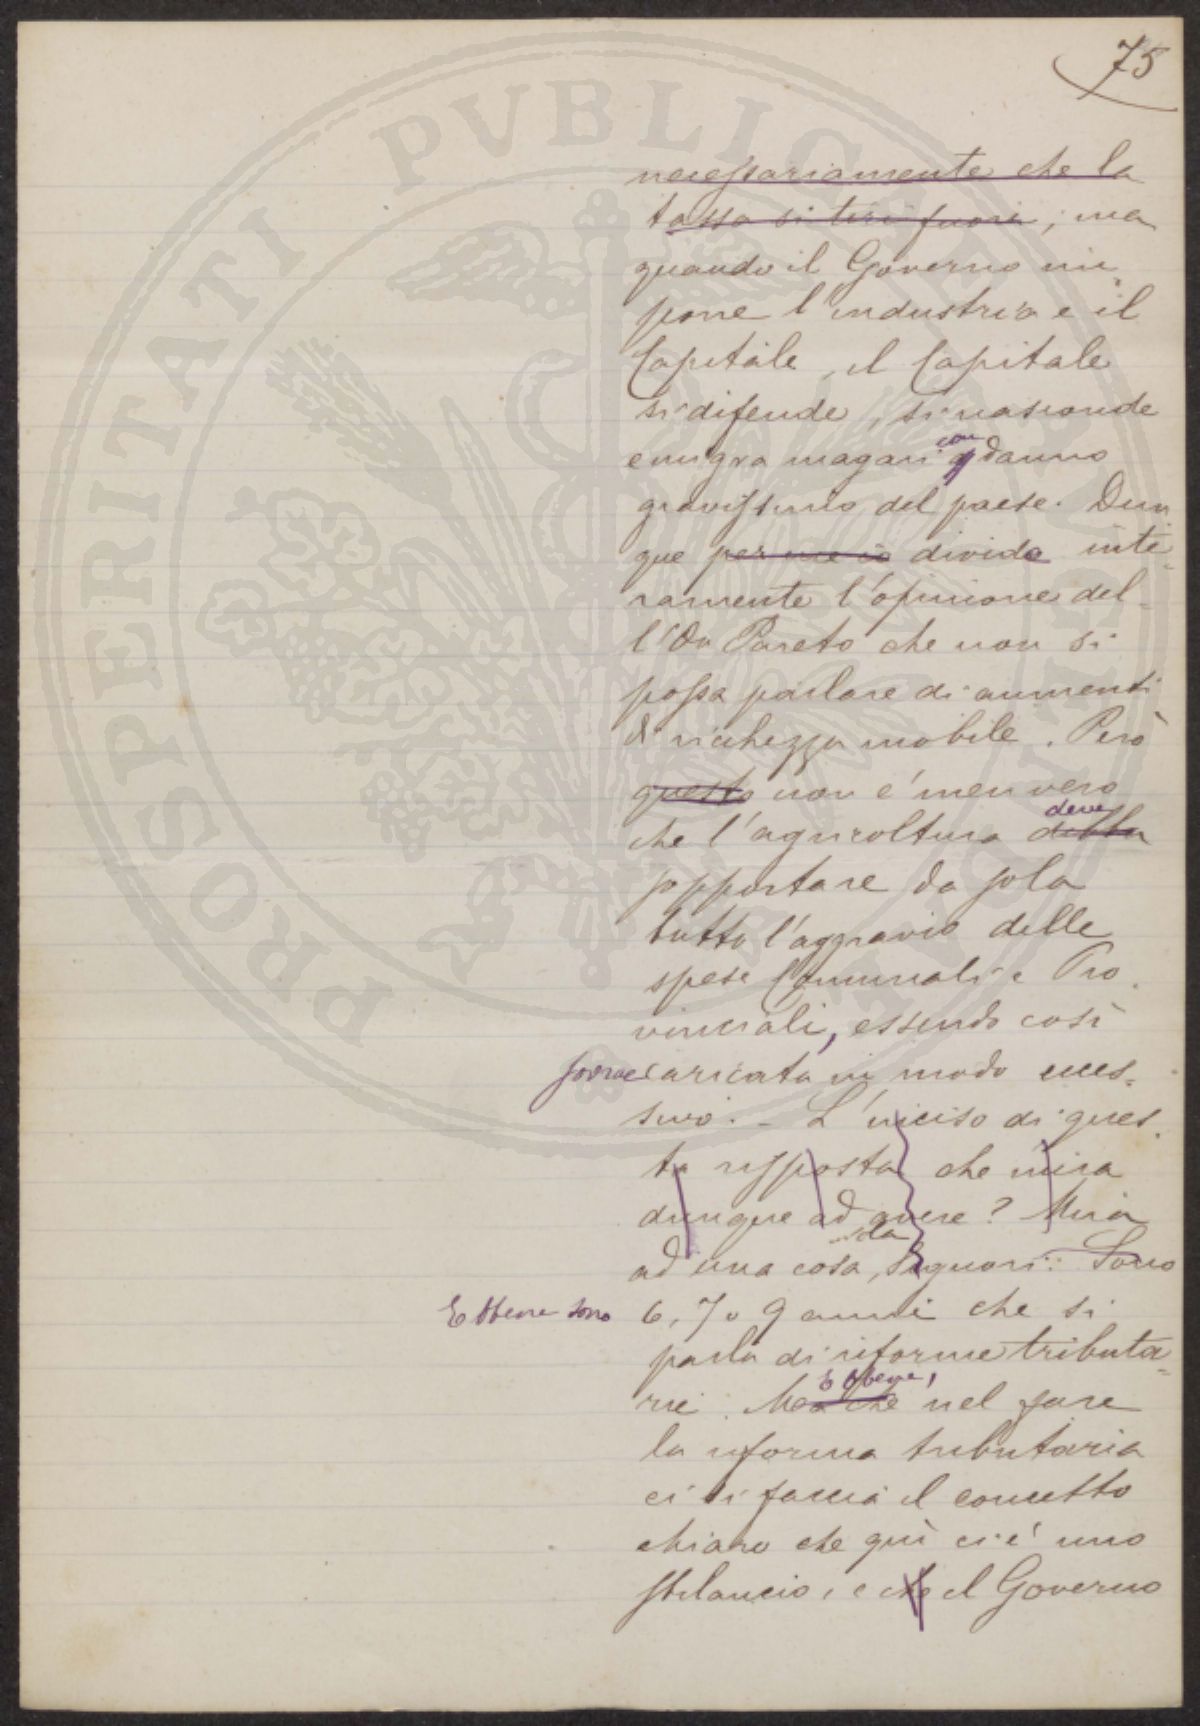 75
necessariamente che la
tassa si tiri fuori; ma
quando il Governo im
pone l'industria e il
Capitale, il Capitale
si difende, si nasconde
emigra magari con danno
gravissimo del paese. Dun
que per me io divido inte-
ramente l'opinione del-
l'On Pareto che non si
possa parlare di aumenti
di ricchezza mobile. Però
questo non é men vero
che l'agricoltura debba deve
sopportare da sola
tutto l'aggravio delle
spese Comunali e Pro
vinciali, essendo così
sovracaricata in modo ecces-
sivo. - L'inciso di ques
ta risposta che mira
dunque ad avere? Mira
ad una cosa sola, Signori: Sono
Ebbene sono 6, 7 o 9 anni che si
parla di riforme tributa-
rie. Ma che Ebbene, nel fare
la riforma tributaria
ci si faccia il concetto
chiaro che quì ci é uno
sbilancio, e che il Governo
PROSPERITATI PVBLICAE